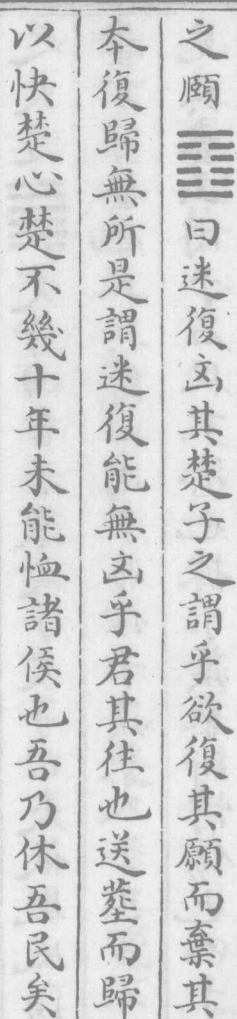 之頤䷚曰迷復凶其楚子之謂乎欲復其願而棄其
本復歸無所是謂迷復能無凶乎君其往也送葬而歸
以快楚心楚不幾十年未能恤諸侯也吾乃休吾民矣